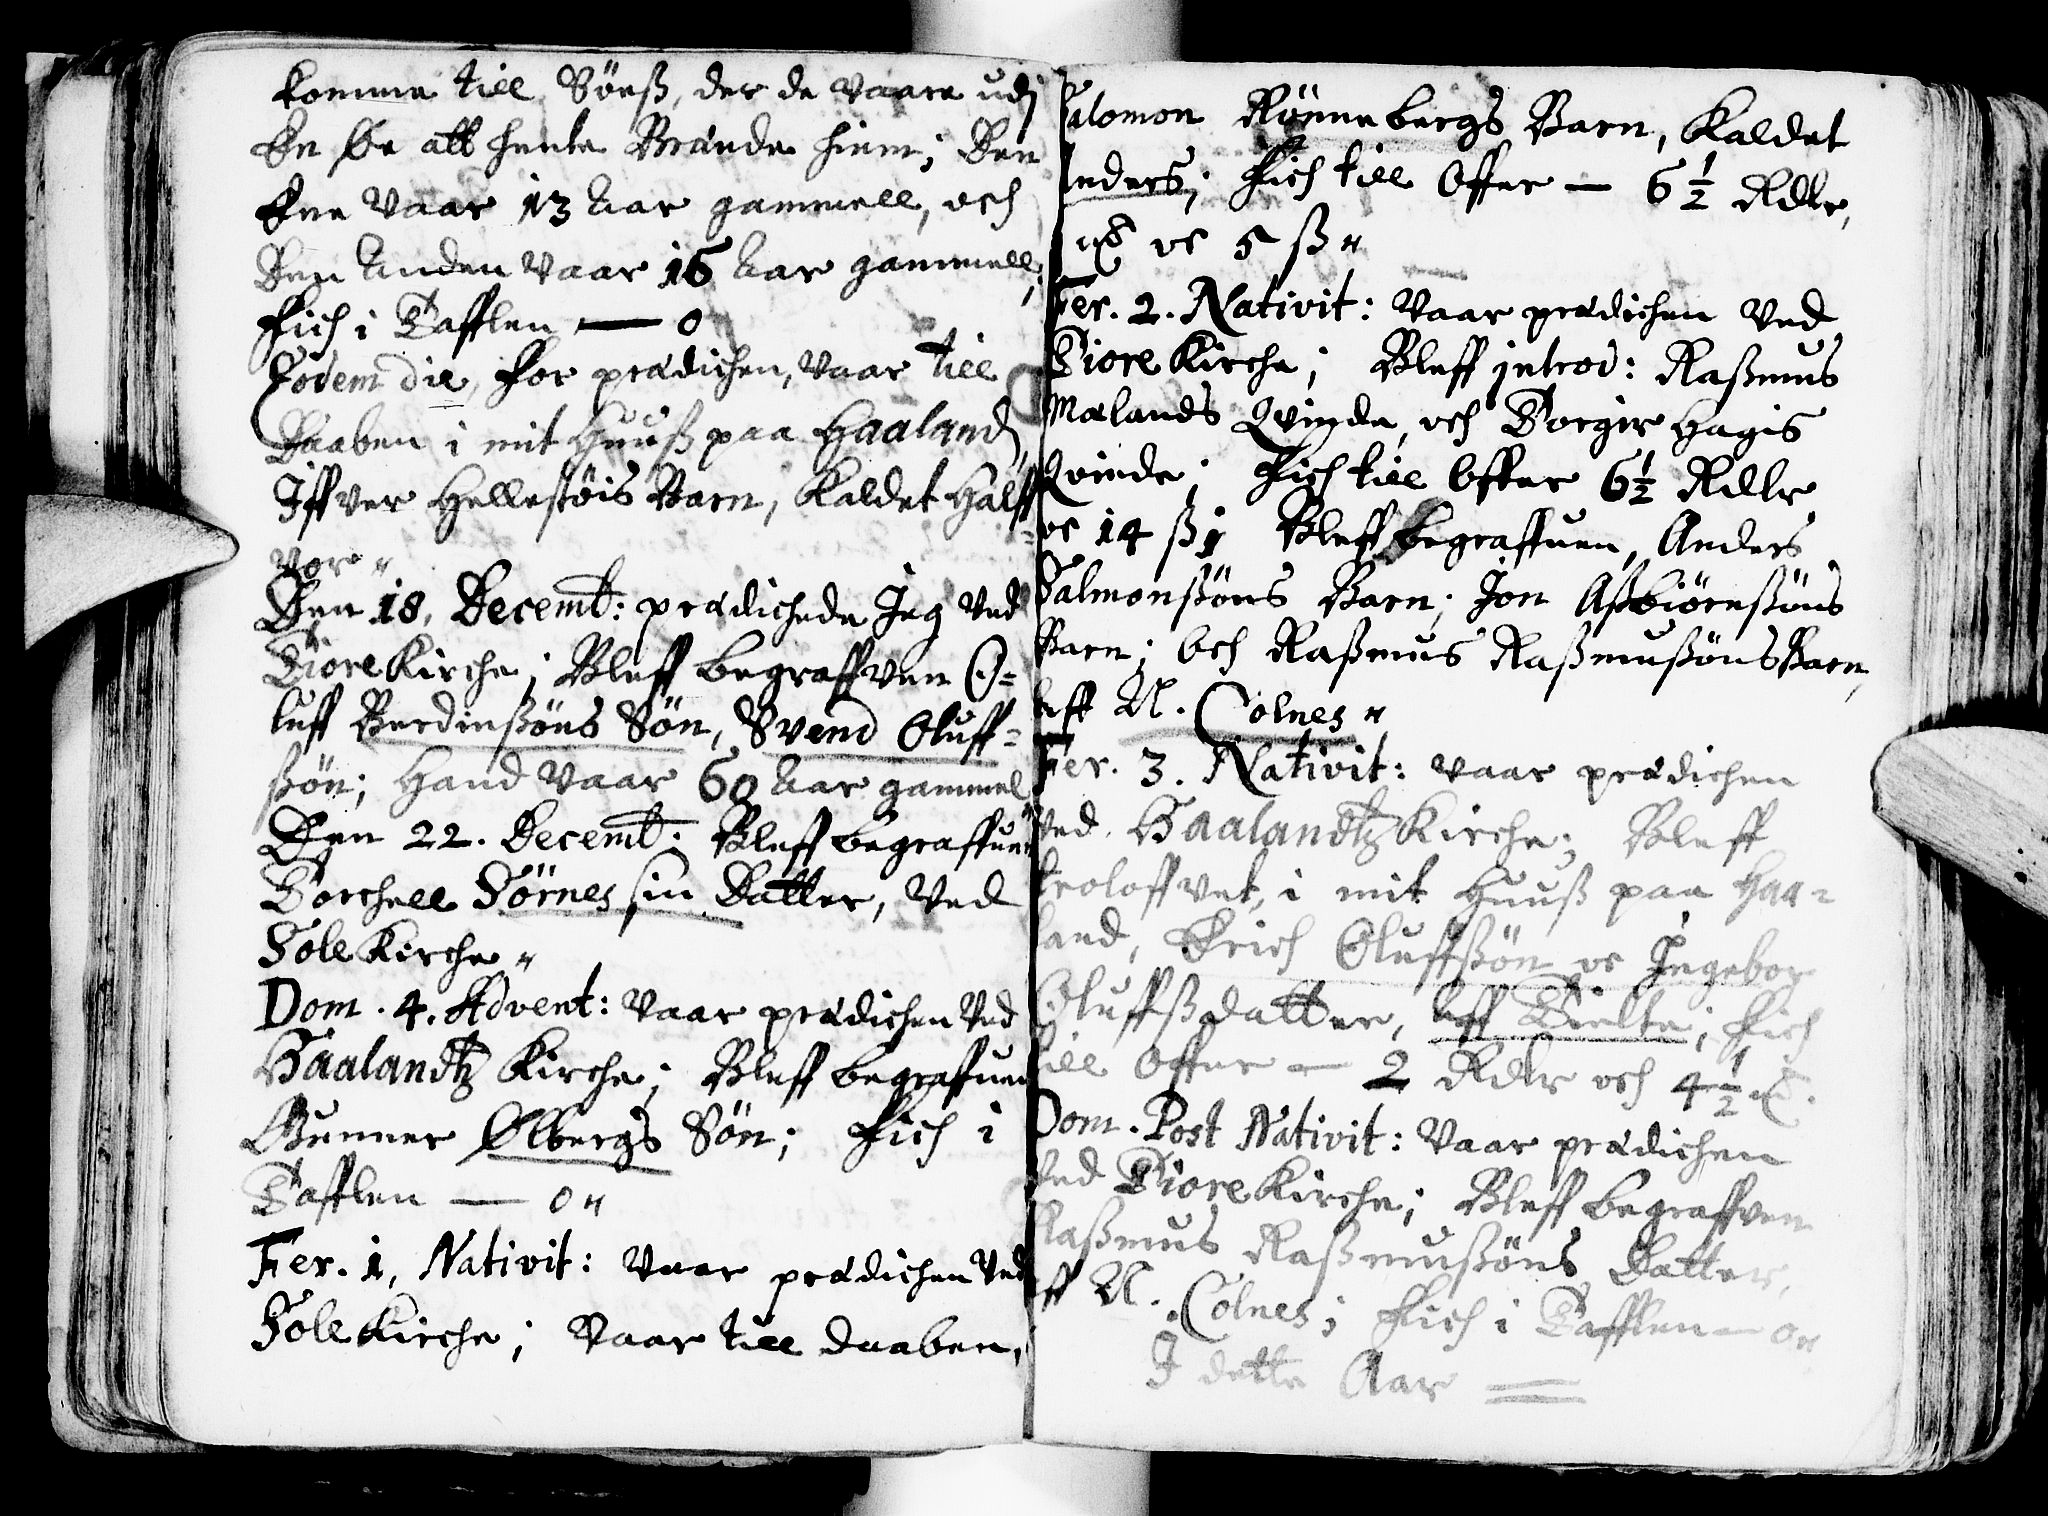 komme till Söeß, der de vaare udj
En Øe att hente Brænde hiem; Den
Ene vaar 13 Aar gammell, och
Den Anden vaar 16 Aar gammell;
Fich i Tafflen — 0
Eodem die, for prædichen, vaar till
Daaben i mit Huuß paa Haaland,
Iffver Hellestöis Barn, Kaldet Halff=
vor"
Den 18. Decemb: prædichede Jeg ved
Tiore Kirche; Bleff begraffven O=
luff Berdinßöns Sön, Svend Oluff=
ßön; Hand vaar 60 Aar gammel
Den 22. Decemb: Bleff begraffuen
Torchell Sörnes sin Datter, ved
Sole Kirche"
Dom. 4. Advent: vaar prædichen ved
Haalandtz Kirche; Bleff begraffuen
Gunner Ølbergs Sön; Fich i
Tafflen — 0"
Fer. 1, Nativit: vaar prædichen ved
Sole Kirche; vaar till daaben,
Salomon Rönnebergs Barn, Kaldet
Anders; Fich till Offer — 6 1/2 Rdlr,
oc 5 ß"
Fer. 2. Nativit: vaar prædichen ved
Tiore Kirche; Bleff introd: Raßmus
Mælands Qvinde, och Torgir Hagis
Qvinde; Fich till Offer 6 1/2 Rdlr
oc 14 ß; Bleff begraffuen, Anders
Salmonßöns Barn; Jon Aßbiörnßöns
Barn; Och Raßmus Raßmußöns Barn,
aff N. Colnes"
Fer. 3. Nativit: vaar prædichen
ved Haalandtz Kirche; Bleff
troloffvet, i mit Huuß paa Haa=
land, Erich Oluffßön oc Ingebor
Oluffßdatter, aff Tielte; Fich
till Offer — 2 Rdlr och 4 1/2
Dom. Post Nativit: vaar prædichen
ved Tiore Kirche; Bleff begraffven
Raßmus Raßmußöns Datter,
aff N. Colnes; Fich i Tafflen — 0"
I dette Aar